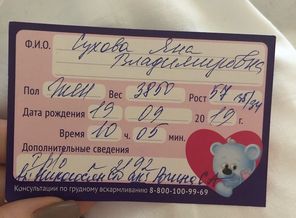 Ф.И.О. Сухова Яна
Владимировна
Пол жен Вес 3850 Рост 57
Дата рождения 19 09 2019 г.
Время 10 ч. 05 мин.
Дополнительные сведения
Консультации по грудному вскармливанию 8-800-100-99-69